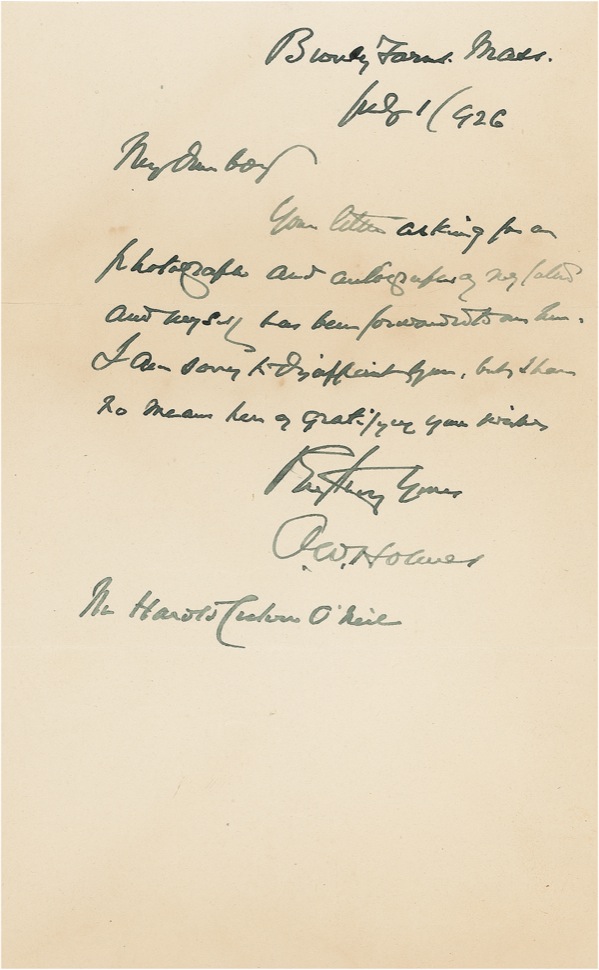 Beverly Farms. Mass.
July 1 1926
My dear boy
Your letter asking for an
photograph and autographs of my father
and myself has been forwarded to me here.
I am sorry to disappoint you, but I have
no means here of gratifying your wishes
Very truly Yours
O.W. Holmes
Mr Harold O'Neil